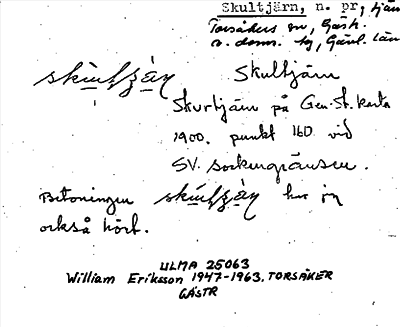 Skultjärn, n. pr, tjärn
Torsåkers sn, Gästr.
v. doms. hg, Gävl. län
Skultjärn
Skurtjärn på Gen. St. karta
1900. punkt 160 vid
SV. sockengränsen.
Betoningen har jg
också hört.
ULMA 25063
William Eriksson 1947-1963. TORSÅKER
GÄSTR